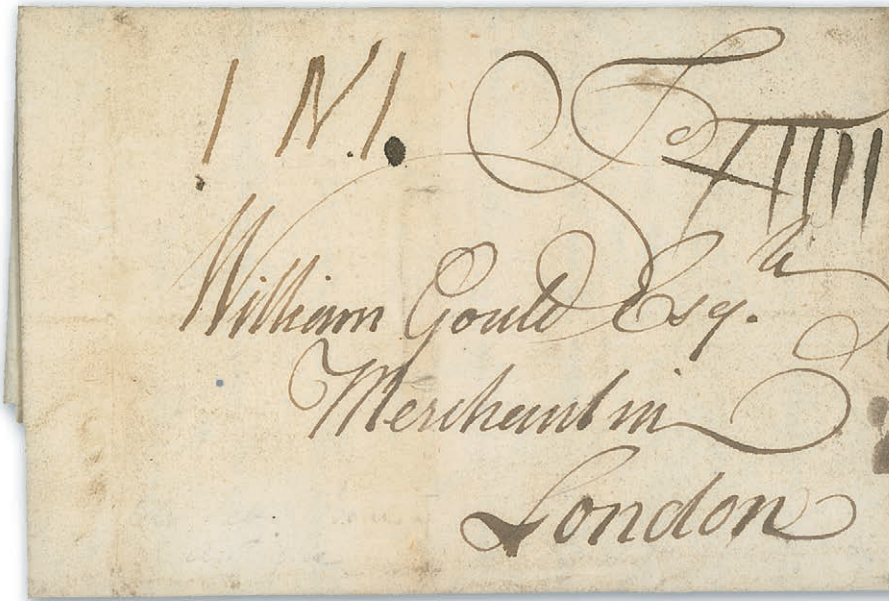 1 N 1. To
William Gould Esq.r
Merchant in
London